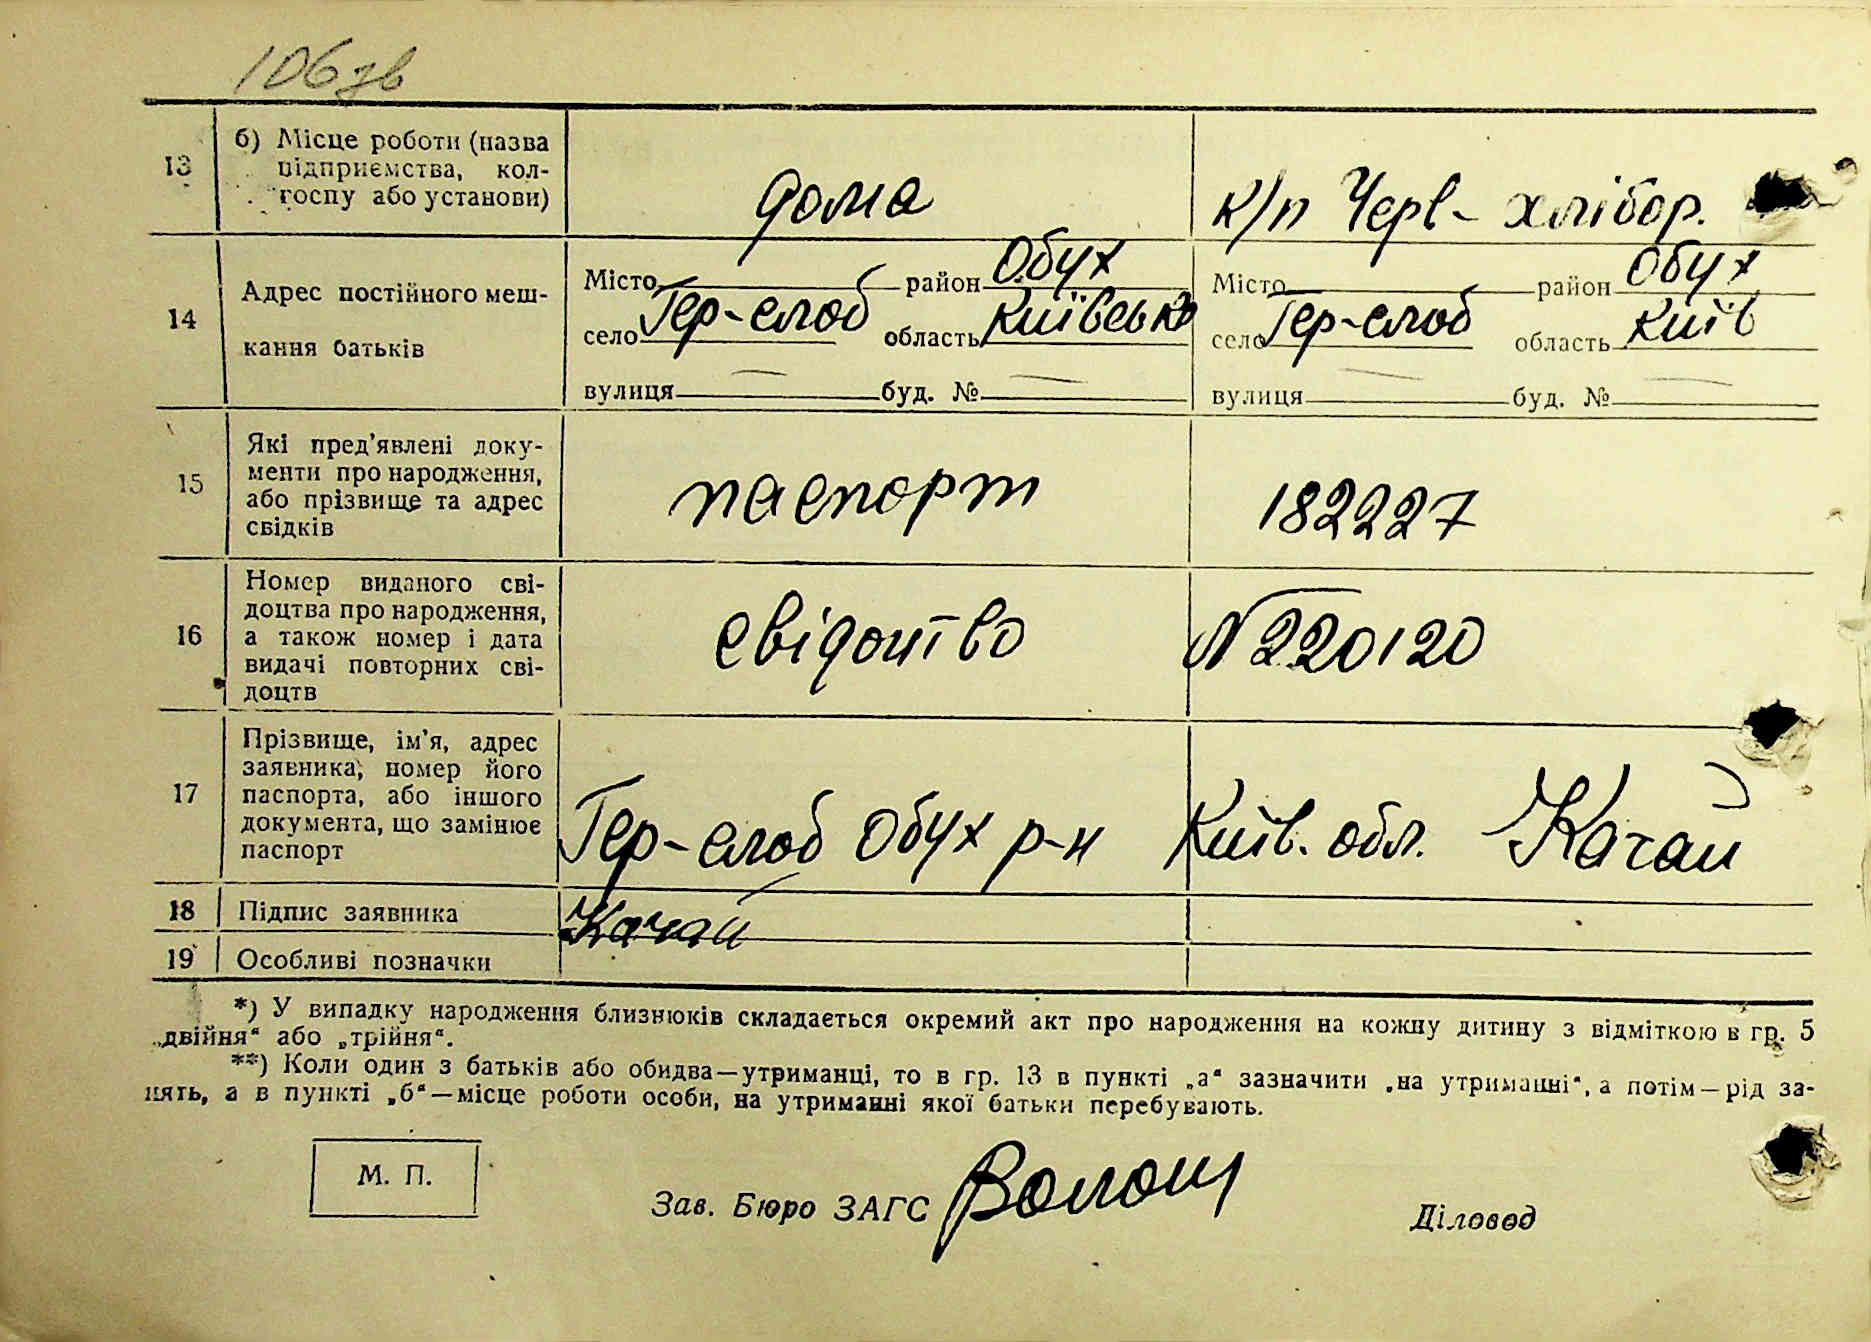 106 зв
13 б) Місце роботи (назва підприємства, колгоспу або установи) дома к/п Черв- хлібор.
14 Адрес постійного мешкання батьків
Місто район Обух Місто район Обух
село Гер-слоб область Київсько село Гер-слоб область Київ
вулиця — буд. № — вулиця — буд. № —
15 Які пред'явлені документи про народження, або прізвище та адрес свідків паспорт 182227
16 Номер виданого свідоцтва про народження, а також номер і дата видачі повторних свідоцтв свідоцтво N 220120
17 Прізвище, ім'я, адрес заявника, номер його паспорта, або іншого документа, що замінює паспорт Гер-слоб Обух р-н Київ. обл. Качай
18 Підпис заявника Качай
19 Особливі позначки
*) У випадку народження близнюків складається окремий акт про народження на кожну дитину з відміткою в гр. 5
„двійня“ або „трійня“.
**) Коли один з батьків або обидва—утриманці, то в гр. 13 в пункті „а“ зазначити „на утриманні“, а потім—рід за-
нять, а в пункті „б“—місце роботи особи, на утриманні якої батьки перебувають.
М. П.
Зав. Бюро ЗАГС Волощ Діловод